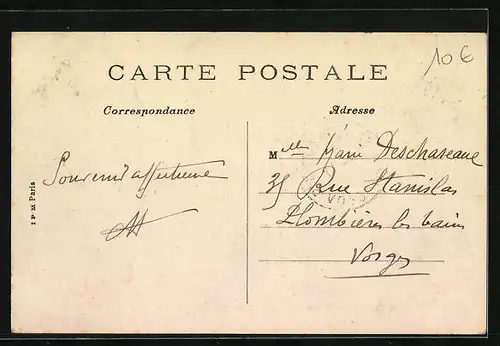 10 €
CARTE POSTALE
Correspondance
Adresse
Souvenir affectueux
Mlle Marie Deschaseaux
35 Rue Stanislas
Plombières les bains
Vosges
I P M Paris